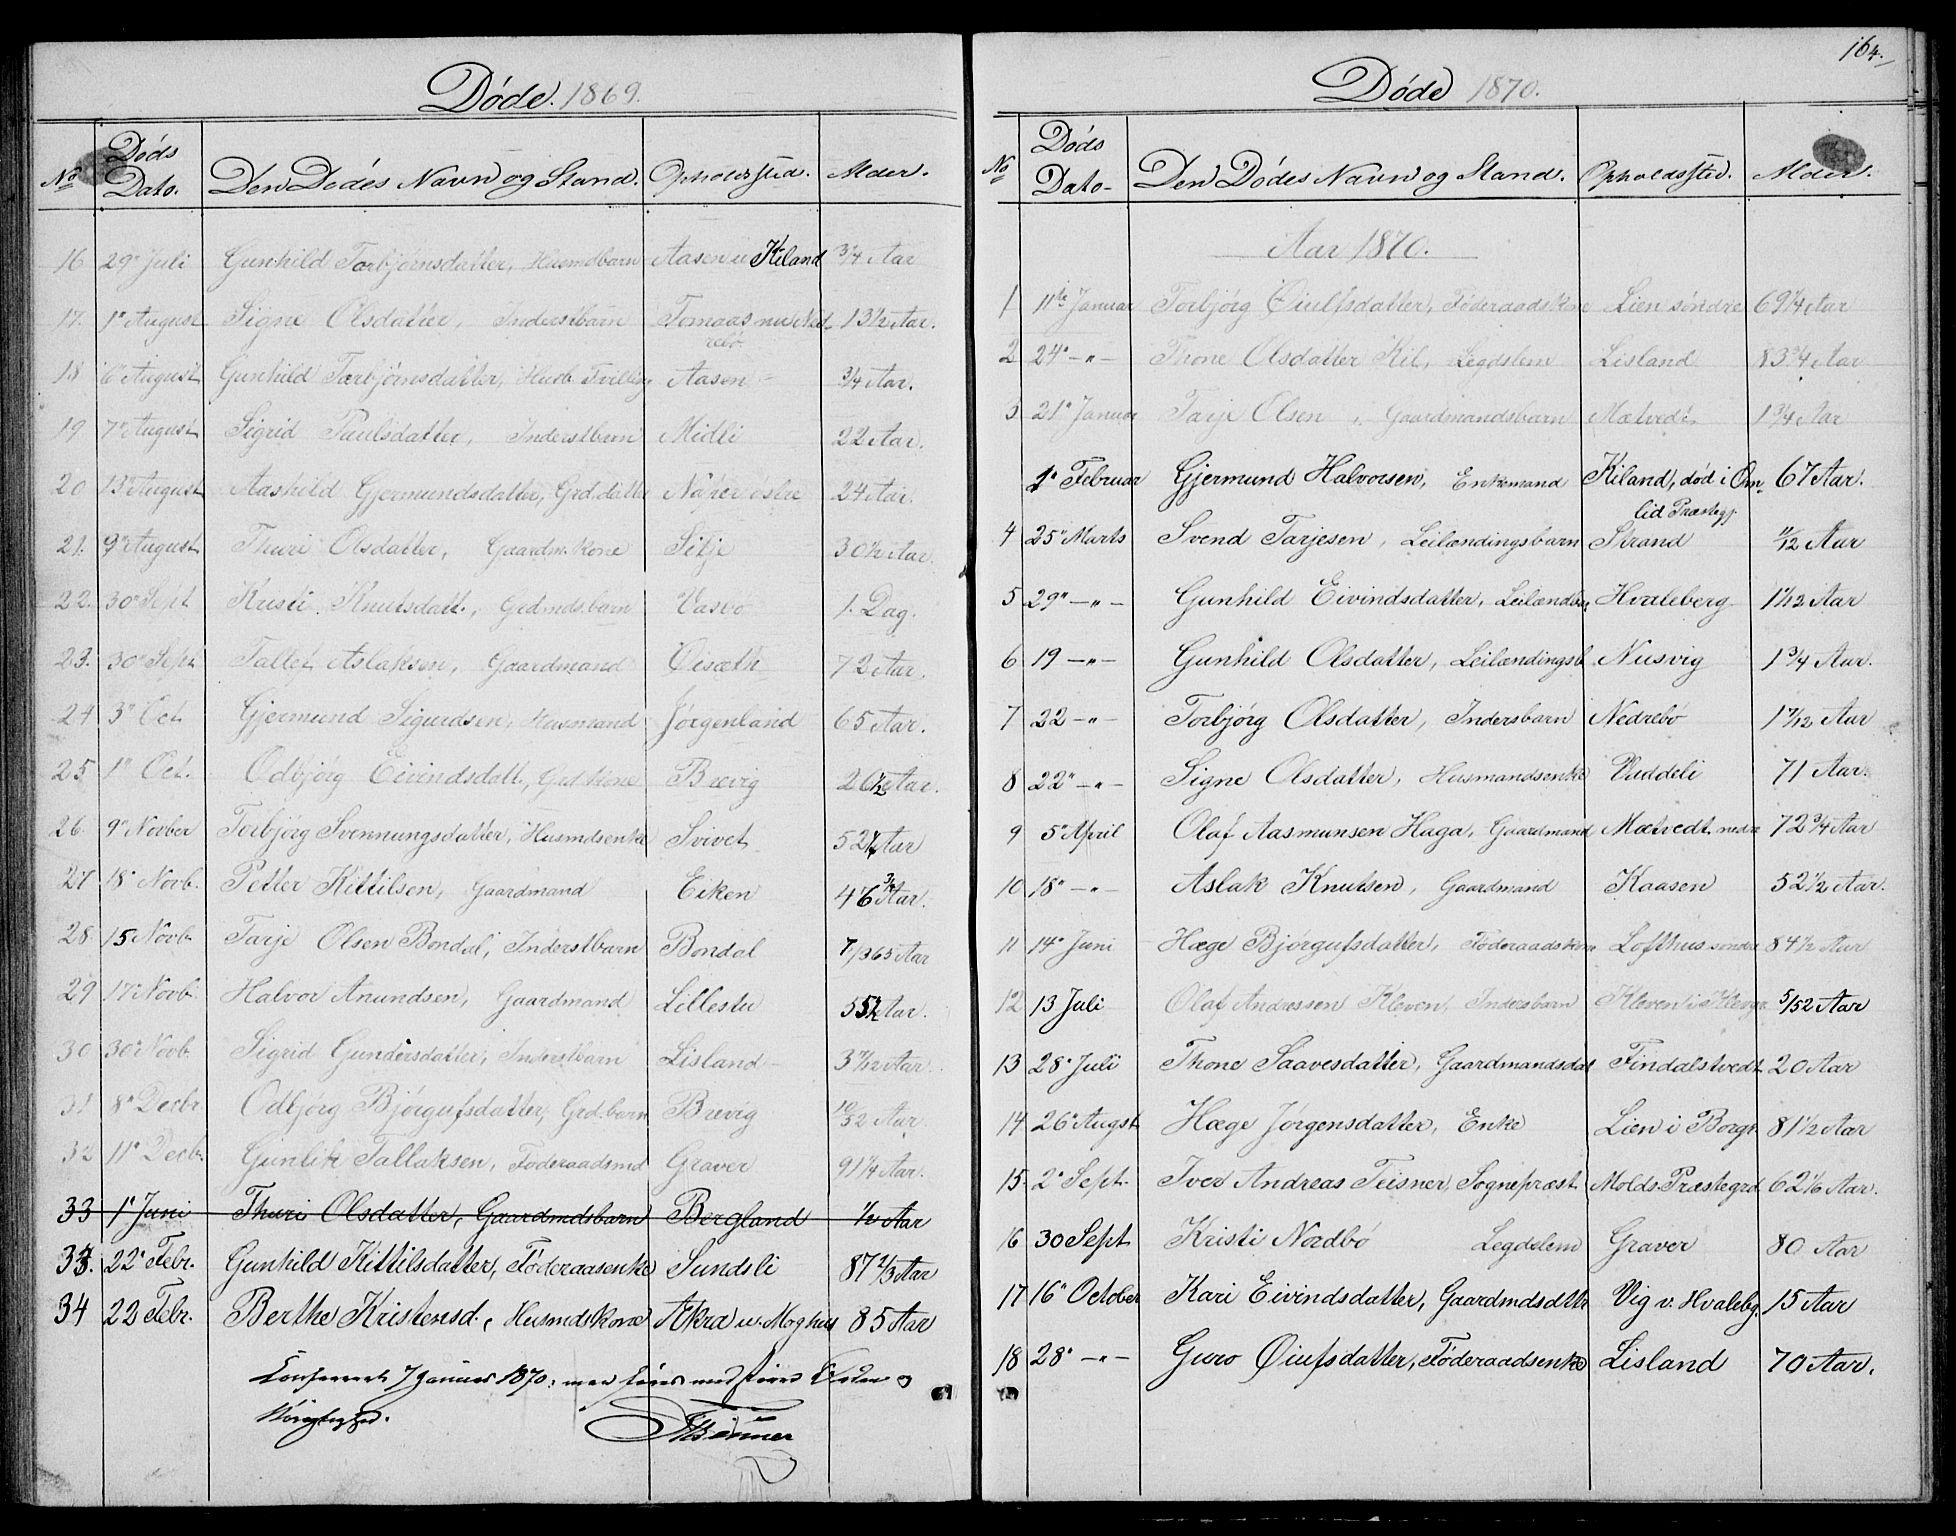 Døde. 1869.
No Døds Dato. Den Dødes Navn og Stand. Opholdssted. Alder.
16 29' Juli Gunhild Torbjørnsdatter, Husmdbarn Aasen u Kiland 3/4 Aar
17. 1' August Signe Olsdatter, Inderstbarn Tomaas nu Ned- 13 1/2 Aar.
rebø
18 6' August Gunhild Torbjørnsdatter, Husb. Tvilling Aasen 3/4 Aar.
19 7' August Sigrid Paulsdatter, Inderstbarn Midli 22 Aar.
20 13' August Aashild Gjermundsdatter, Grd.datter Naper østre 24 Aar.
21. 9' August Thuri Olsdatter, Gaardm.kone Silje 30 1/2 Aar.
22. 30' Sept Kristi Knutsdatt., Grdmds.barn Vasbø 1. Dag.
23. 30' Sept Tallef Aslaksen, Gaardmand Øisæth 72 Aar.
24 3' Oct. Gjermund Sigurdsen, Husmand Jørgenland 65 Aar.
25 1' Oct. Odbjørg Eivindsdatt., Grd.kone Brevig 26 1/2 Aar.
26. 9' Novber Torbjørg Svennungsdatter, Husmdsenke Svivet 52 1/4 Aar
27 18' Novb. Petter Kittilsen, Gaardmand Eiken 46 3/4 Aar.
28. 15 Novb. Tarje Olsen Bondal, Inderstbarn Bondal 7/365 Aar
29 17' Novb. Halvor Anundsen, Gaardmand Lillestu 55 1/2 Aar.
30 30' Novb. Sigrid Gundersdatter, Inderstbarn Lisland 3 7/12 Aar.
31 8' Decbr. Odbjørg Bjørgufsdatter, Grd.barn Brevig 10/52 Aar.
32 11' Decbr. Gunlik Tallaksen, Føderaadsmd Graver 91 1/4 Aar.
33 1' Juni Thuri Olsdatter, Gaardmdsbarn Bergland 1/2 Aar
33. 22' Febr. Gunhild Kittilsdatter, Føderaasenke Sundsli 87 2/3 Aar
34 22 Febr. Berthe Kristensd., Husmdskone Akra u. Moghus 85 Aar
Confereret 7 Januar 1870;
Nøiagtighed.
164.
Døde 1870.
No Døds Dato- Den Dødes Navn og Stand. Opholdssted. Alder.
Aar 1870.
1 11te Januar Torbjørg Øiulfsdatter, Føderaadskone Lien søndre 69 1/4 Aar
2 24' -"- Thone Olsdatter Kil, Legdslem Lisland 83 3/4 Aar
3 21' Januar Tarje Olsen, Gaardmandsbarn Mætvedt 1 3/4 Aar
1' Februar Gjermund Halvorsen, Enkemand Kiland, død i Om- 67 Aar.
lid Præstegj.
4 25' Marts Svend Tarjesen, Leilændingsbarn Strand 11/12 Aar
5 29' -"- Gunhild Eivindsdatter, Leilændbar Hvaleberg 1 1/12 Aar
6 19 -"- Gunhild Olsdatter, Leilændingsb Nusvig 1 3/4 Aar.
7 22 -"- Torbjørg Olsdatter, Indersbarn Nedrebø 1 7/12 Aar
8 22' -"- Signe Olsdatter, Husmandsenke Vuddeli 71 Aar.
9 5' April Olaf Aasmunsen Haga, Gaardmand Mætvedt nedre 72 3/4 Aar
10 18' -"- Aslak Knutsen, Gaardmand Kaasen 52 1/2 Aar.
11 14' Juni Hæge Bjørgufsdatter, Føderaadskone Lofthus søndre 84 1/2 Aar
12 13 Juli Olaf Andressen Kleven, Indersbarn Kleven i 5/52 Aar
13 28' Juli Thone Saavesdatter, Gaardmandsdat Findalstvedt 20 Aar
14 26' Augst Hæge Jørgensdatter, Enke Lien i Borgs 81 1/2 Aar
15. 2' Sept. Iver Andreas Teisner, Sognepræst Molds Præstegrd. 62 1/6 Aar.
16 30 Sept Kristi Nordbø Legdslem Graver 80 Aar
17 16' October Kari Eivindsdatter, Gaardmdsdttr Vig v. Hvalebg. 15 Aar
18 28' -"- Guro Øiufsdatter, Føderaadsenke Lisland 70 Aar.